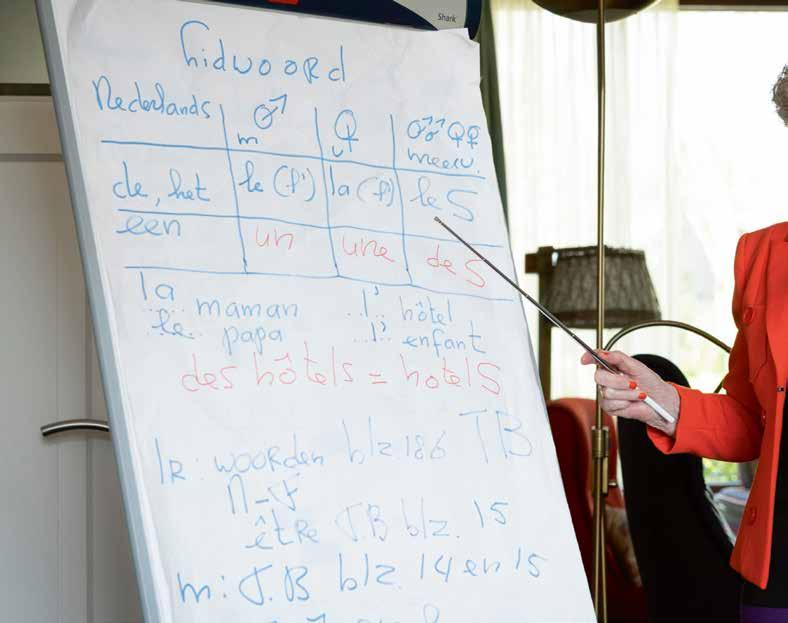 Shark
lidwoord
Nederlands ♂ ♀ ♂♂ ♀♀
m v meerv.
de, het le (l') la (l') les
een un une des
la maman l' hôtel
le papa l' enfant
des hôtels = hotels
lR: woorden blz 186 TB
N-F
être T.B blz. 15
m: T.B blz. 14 en 15